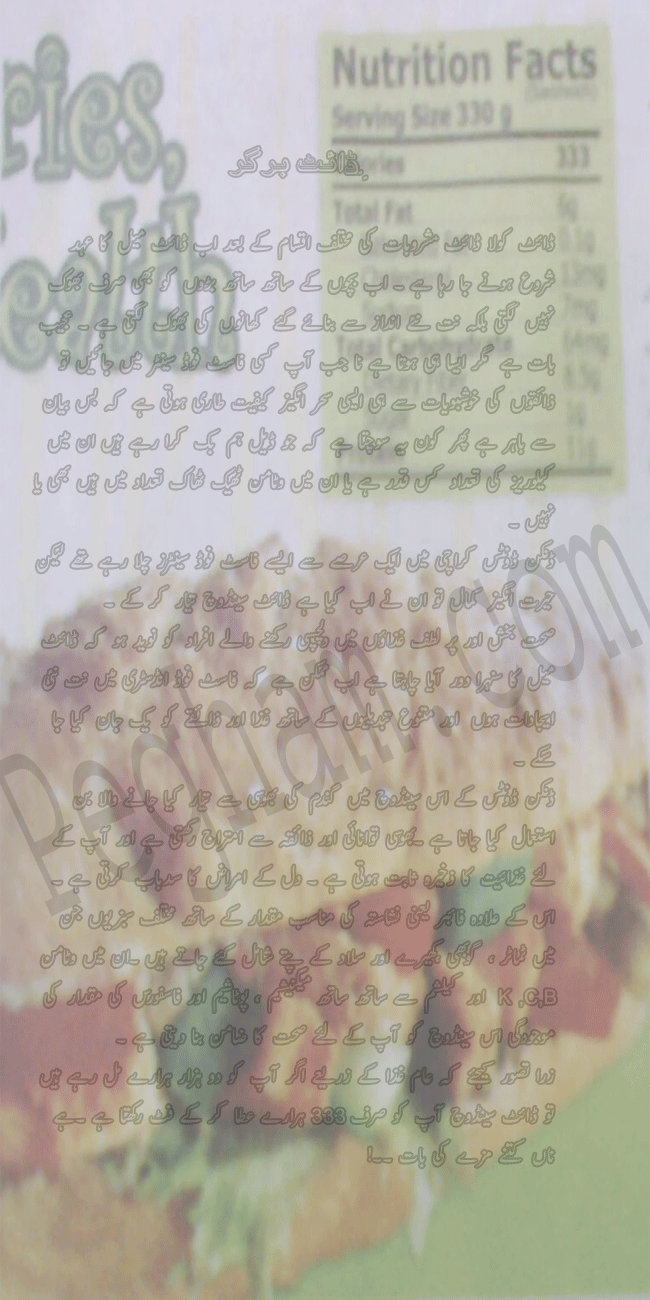 ries,
ealth
Nutrition Facts
(Sandwich)
Serving Size 330 g
ories 333
Total Fat 6g
0.1g
12mg
mg
Total Carbohydrate 64mg
8.5g
11g
ڈائٹ برگر
ڈائٹ کولا ڈائٹ مشروبات کی مختلف اقسام کے بعد اب ڈائٹ میل کا عہد
شروع ہونے جا رہا ہے ۔ اب بچوں کے ساتھ ساتھ بڑوں کو بھی صرف بھوک
نہیں لگتی بلکہ نت نئے انداز سے بنائے گئے کھانوں کی بھوک لگتی ہے ۔ عجیب
بات ہے مگر ایسا ہی ہوتا ہے نا جب آپ کسی فاسٹ فوڈ سینٹر میں جائیں تو
ذائقوں کی خوشبویات سے ہی ایسی سحر انگیز کیفیت طاری ہوتی ہے کہ بس بیان
سے باہر ہے پھر کون یہ سوچتا ہے کہ جو ڈیل ہم بک کرا رہے ہیں ان میں
کیلوریز کی تعداد کس قدر ہے یا ان میں وٹامن ٹھیک ٹھاک تعداد میں ہیں بھی یا
نہیں ۔
ڈنکن ڈونٹس کراچی میں ایک عرصے سے ایسے فاسٹ فوڈ سینٹرز چلا رہے تھے لیکن
حیرت انگیز کمال تو ان نے اب کیا ہے ڈائٹ سینڈوچ تیار کر کے ۔
صحت بخش اور پر لطف غذاؤں میں دلچسپی رکھنے والے افراد کو نوید ہو کہ ڈائٹ
میل کا سنہرا دور آیا چاہتا ہے اب ممکن ہے کہ فاسٹ فوڈ انڈسٹری میں نت نئی
ایجادات ہوں اور متنوع تبدیلیوں کے ساتھ غذا اور ذائقے کو یک جان کیا جا
سکے ۔
ڈنکن ڈونٹس کے اس سینڈوچ میں گندم کی بھوی سے تیار کیا جانے والا بن
استعمال کیا جاتا ہے ۔بھوی توانائی اور ذائقہ سے امتزاج رکھتی ہے اور آپ کے
لئے غذائیت کا ذخیرہ ثابت ہوتی ہے ۔ دل کے امراض کا سدباب کرتی ہے ۔
اس کے علاوہ فائبر یعنی نشاستہ کی مناسب مقدار کے ساتھ مختلف سبزیوں جن
میں ٹماٹر ، گوبھی ،کھیرے اور سلاد کے پتے شامل کئے جاتے ہیں ۔ان میں وٹامن
K ,C,B اور کیلشم سے ساتھ ساتھ میگنیشم ، پوٹاشیم اور فاسفورس کی مقدار کی
موجودگی اس سینڈوچ کو آپ کے لئے صحت کا ضامن بنا دیتی ہے ۔
ذرا تصور کیجئے کہ عام غذا کے ذریعے اگر آپ کو دو ہزار حرارے مل رہے ہیں
تو ڈائٹ سینڈوچ آپ کو صرف 333 حرارے عطا کر کے فٹ رکھتا ہے ۔ہے
ناں کتنے مزے کی بات ۔۔!
Pegham.com